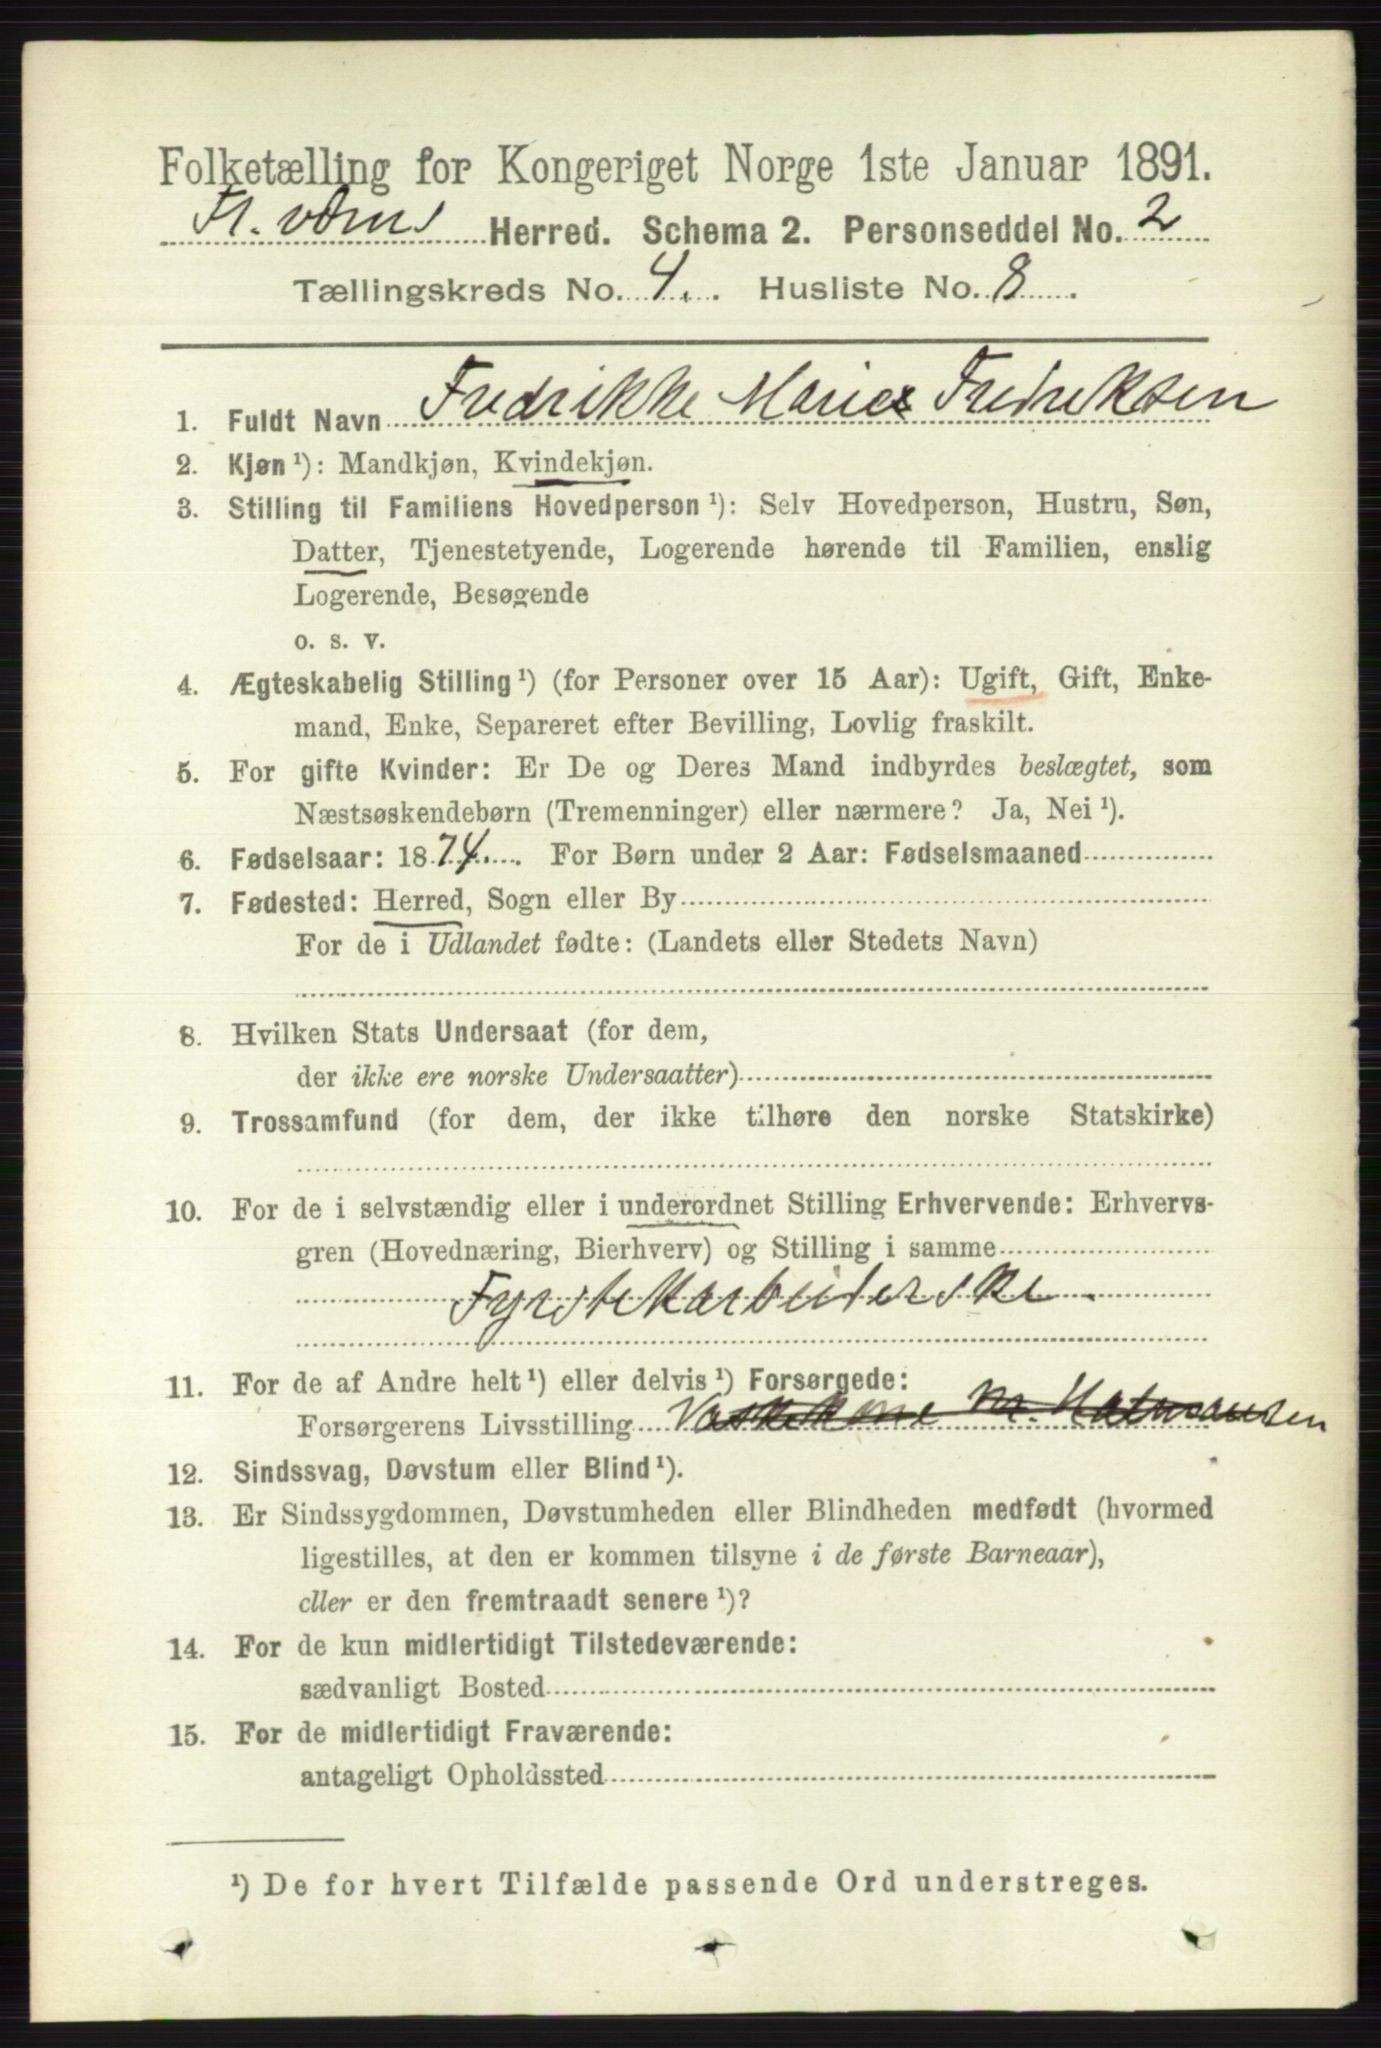 Folketælling for Kongeriget Norge 1ste Januar 1891.
Herred. Schema 2. Personseddel No. 2
Tællingskreds No. 4. Husliste No. 8.
1. Fuldt Navn Fredrikke Marie Fredriksen
2. Kjøn ¹): Mandkjøn, Kvindekjøn.
3. Stilling til Familiens Hovedperson ¹): Selv Hovedperson, Hustru, Søn,
Datter, Tjenestetyende, Logerende hørende til Familien, enslig
Logerende, Besøgende
o. s. v.
4. Ægteskabelig Stilling ¹) (for Personer over 15 Aar): Ugift, Gift, Enke-
mand, Enke, Separeret efter Bevilling, Lovlig fraskilt.
5. For gifte Kvinder: Er De og Deres Mand indbyrdes beslægtet, som
Næstsøskendebørn (Tremenninger) eller nærmere? Ja, Nei ¹).
6. Fødselsaar: 1874. For Børn under 2 Aar: Fødselsmaaned
7. Fødested: Herred, Sogn eller By
For de i Udlandet fødte: (Landets eller Stedets Navn)
8. Hvilken Stats Undersaat (for dem,
der ikke ere norske Undersaatter)
9. Trossamfund (for dem, der ikke tilhøre den norske Statskirke)
10. For de i selvstændig eller i underordnet Stilling Erhvervende: Erhvervs-
gren (Hovednæring, Bierhverv) og Stilling i samme
Fyrstikarbeiderske.
11. For de af Andre helt ¹) eller delvis ¹) Forsørgede:
Forsørgerens Livsstilling Vaskekone M.
12. Sindssvag, Døvstum eller Blind ¹).
13. Er Sindssygdommen, Døvstumheden eller Blindheden medfødt (hvormed
ligestilles, at den er kommen tilsyne i de første Barneaar),
eller er den fremtraadt senere ¹)?
14. For de kun midlertidigt Tilstedeværende:
sædvanligt Bosted
15. For de midlertidigt Fraværende:
antageligt Opholdssted
¹) De for hvert Tilfælde passende Ord understreges.